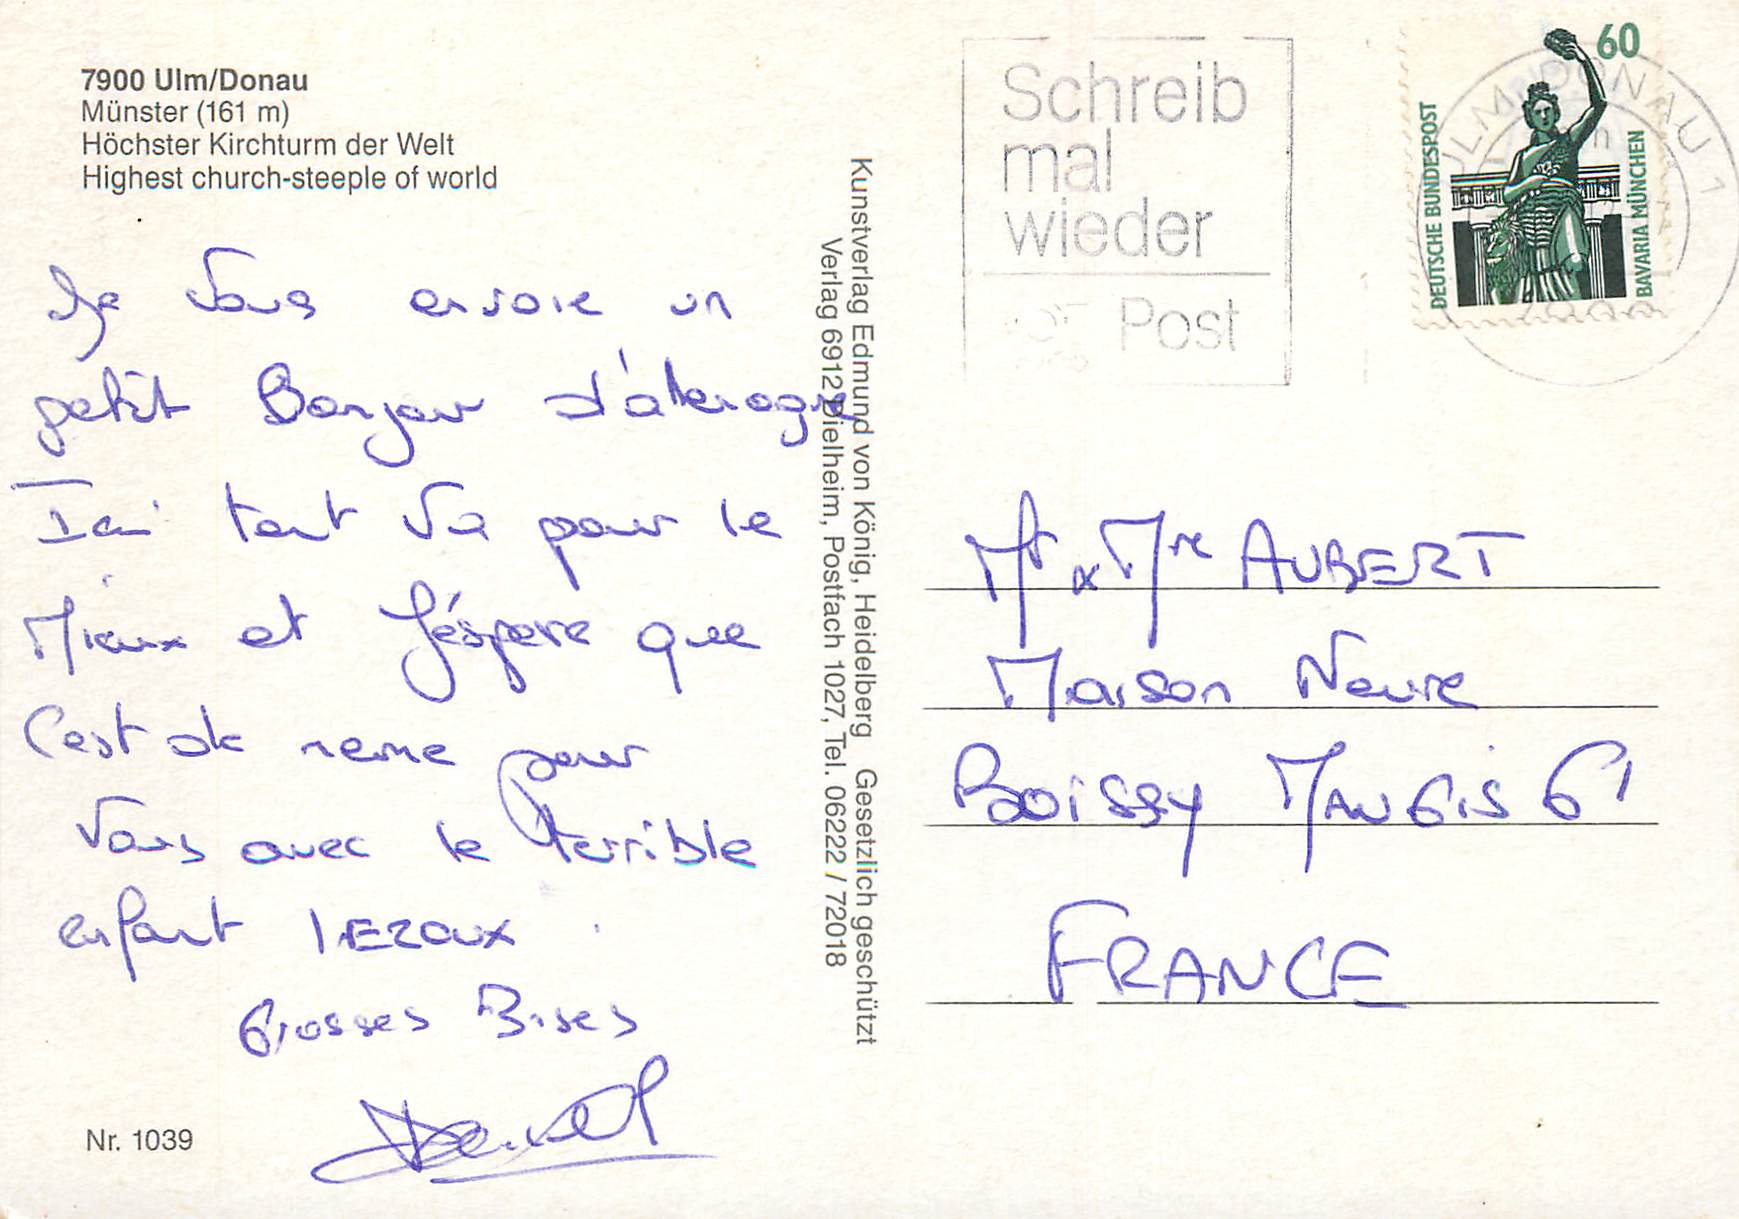 7900 Ulm/Donau
Münster (161 m)
Höchster Kirchturm der Welt
Highest church-steeple of world
Je vous envoie un
petit Bonjour d'alemagne
Ici tout va pour le
Mieux et J'éspere que
C'est ok meme pour
Vous avec le terrible
enfant LEROUX.
Grosses Bises
Nr. 1039
Kunstverlag Edmund von König, Heidelberg Gesetzlich geschützt
Verlag 6912 Dielheim, Postfach 1027, Tel. 06222 / 72018
Schreib
mal
wieder
Post
60
DEUTSCHE BUNDESPOST
BAVARIA MÜNCHEN
ULM, DONAU 1
Mr & Mme AUBERT
Maison Neuve
BOISSY MAUGIS 61
FRANCE